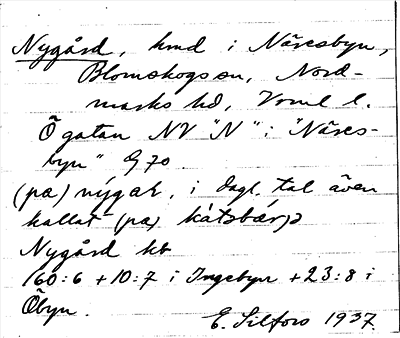 Nygård, hmd i Näresbyn,
Blomskogs sn, Nord-
marks hd, Vrml l.
Ö gatan NV "N" i "Näres-
byn" G 70
(pa) nýgaʀ, i dagl. tal även
kallat (pa) kátsbærjə
Nygård kb
160:6 + 10:7 i Ingebyn + 23:8 i
Öbyn.
E. Silfors 1937.